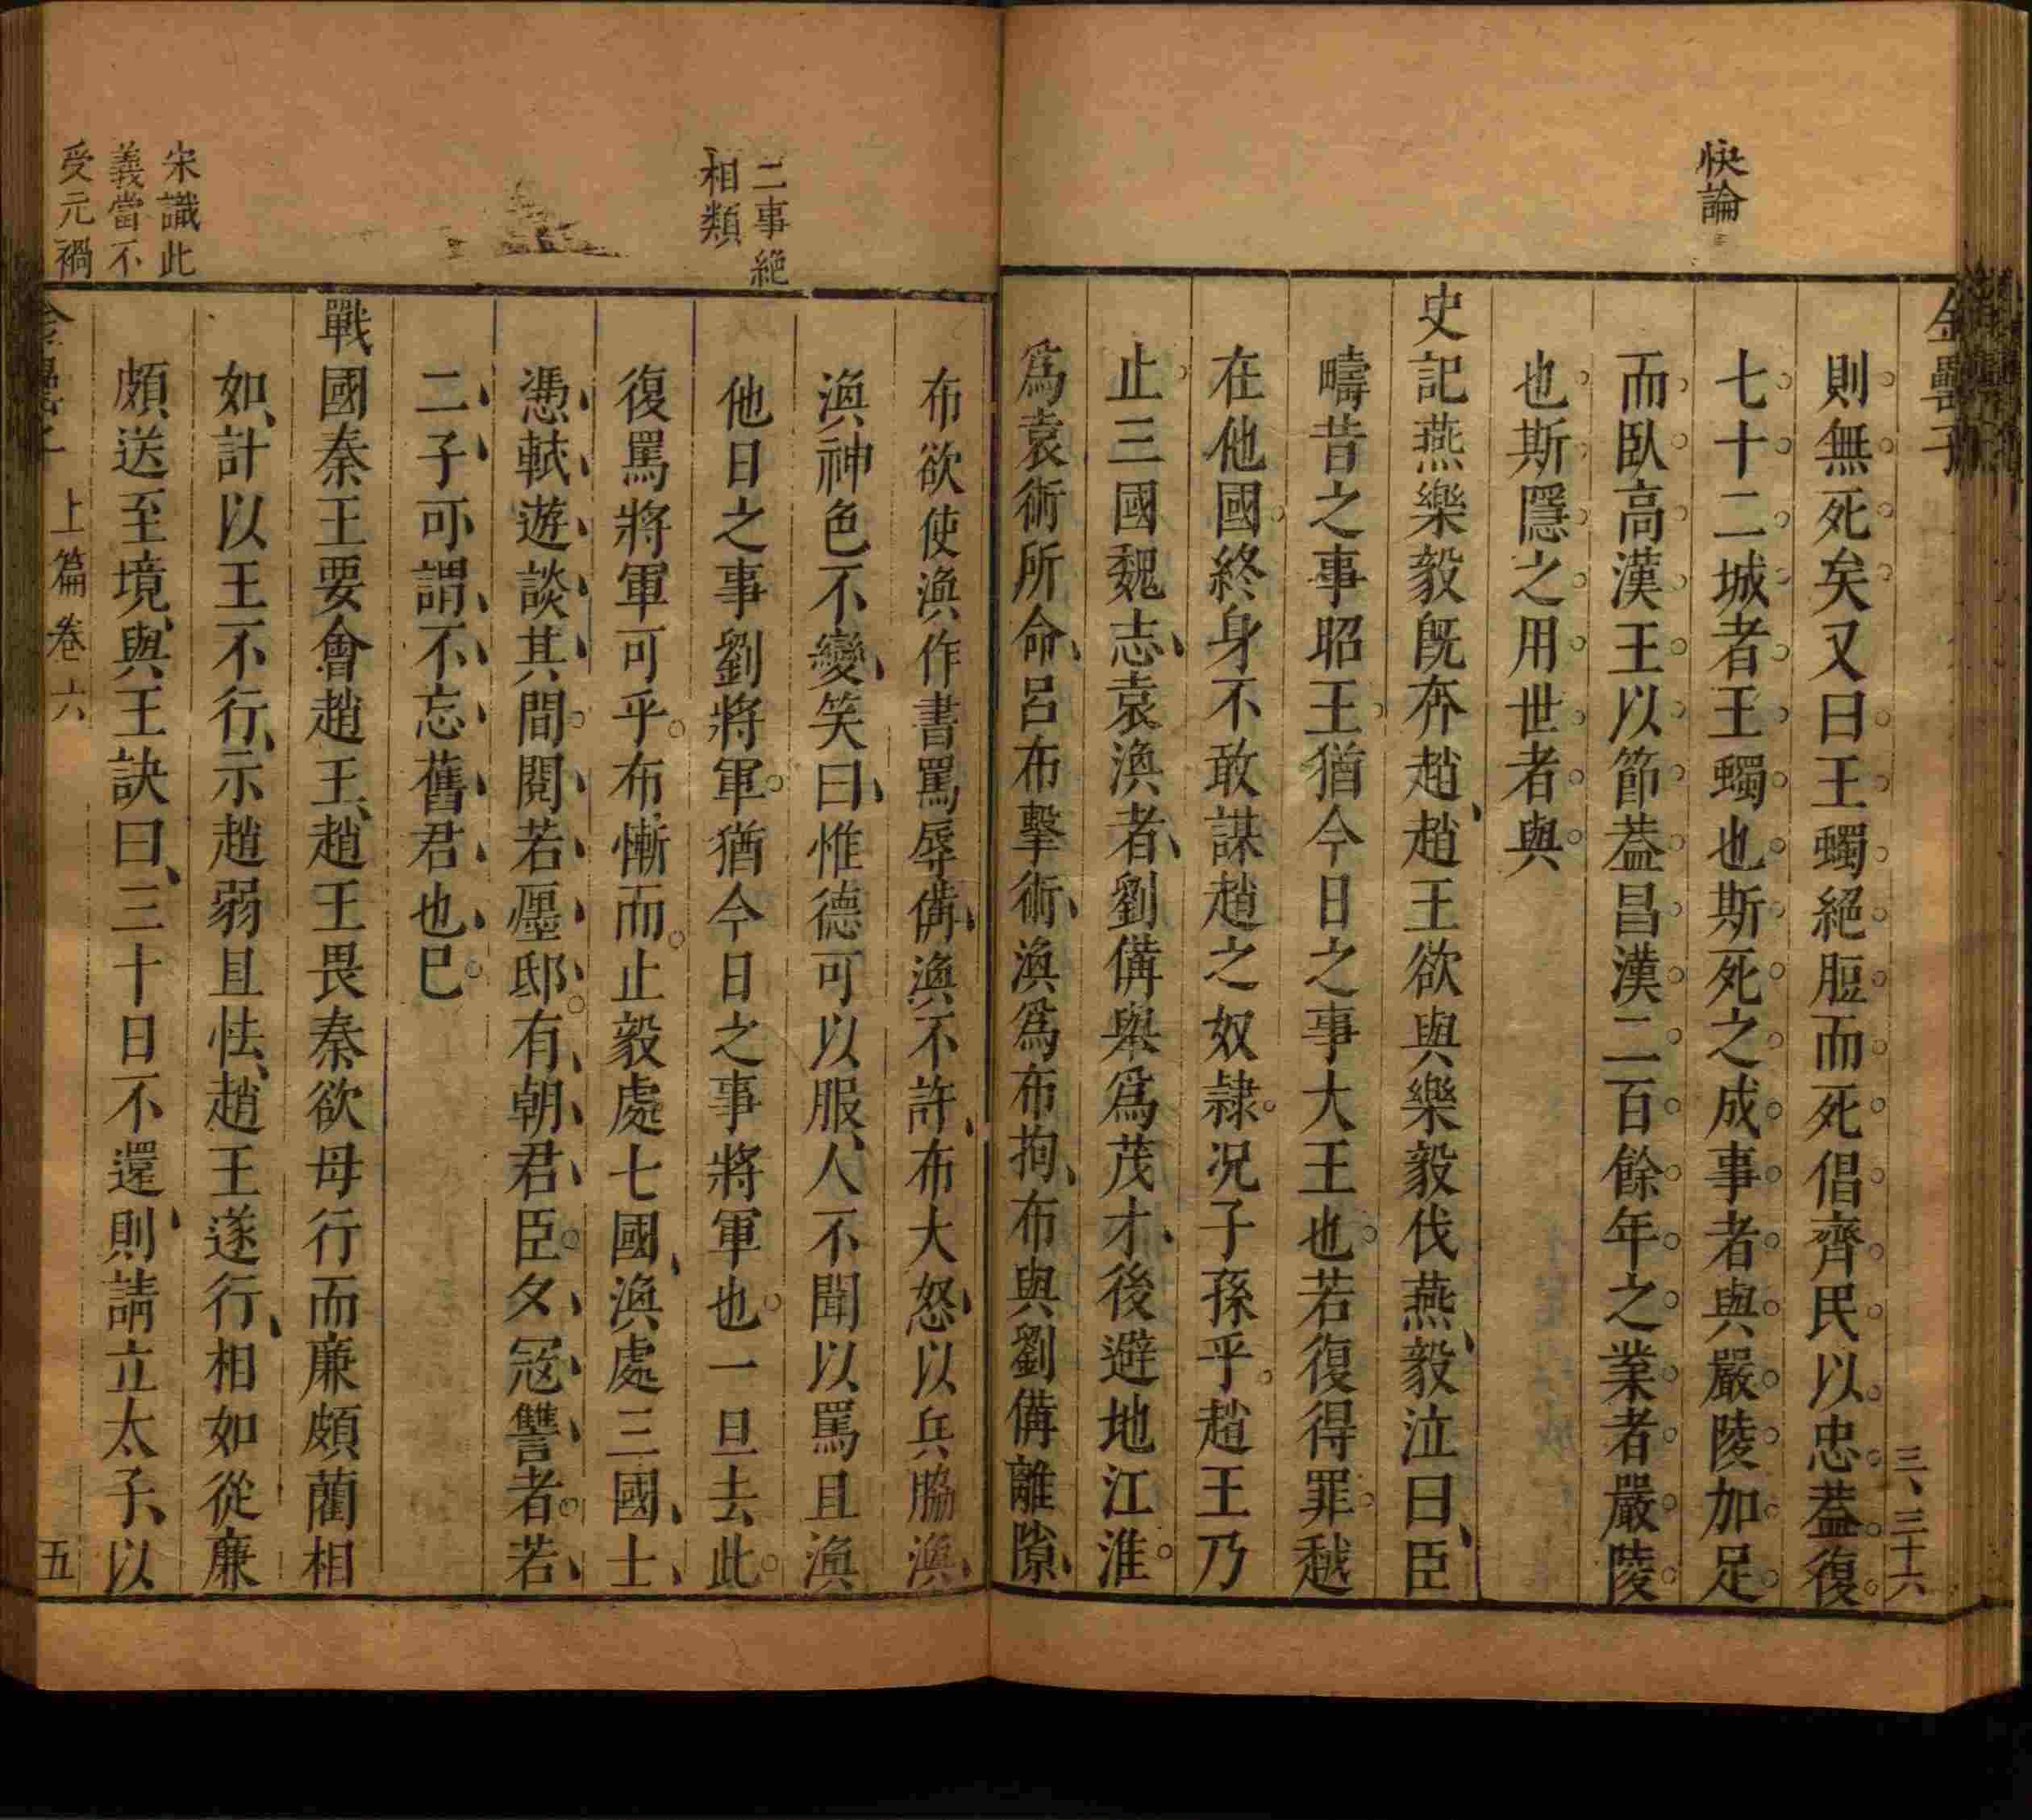 金罍子
三、三十六
快論
則無死矣又曰王蠋絕脰而死倡齊民以忠葢復
七十二城者王蠋也斯死之成事者與嚴陵加足
而臥高漢王以節葢昌漢二百餘年之業者嚴陵
也斯隱之用世者與
史記燕樂毅旣奔趙趙王欲與樂毅伐燕毅泣曰臣
疇昔之事昭王猶今日之事大王也若復得罪越
在他國終身不敢謀趙之奴隸况子孫乎趙王乃
止三國魏志袁渙者劉備舉爲茂才後避地江淮
爲袁術所命呂布擊術渙爲布拘布與劉備離隙
二事絕
相類
布欲使渙作書罵辱備渙不許布大怒以兵脇渙
渙神色不變笑曰惟德可以服人不聞以罵且渙
他日之事劉將軍猶今日之事將軍也一旦去此
復罵將軍可乎布慚而止毅處七國渙處三國士
憑軾遊談其間閱若廛邸有朝君臣夕冦讐者若
二子可謂不忘舊君也巳
戰國秦王要會趙王趙王畏秦欲毋行而廉頗藺相
如計以王不行示趙弱且怯趙王遂行相如從廉
頗送至境與王訣曰三十日不還則請立太子以
宋識此
義當不
受元禍
上篇卷六
五